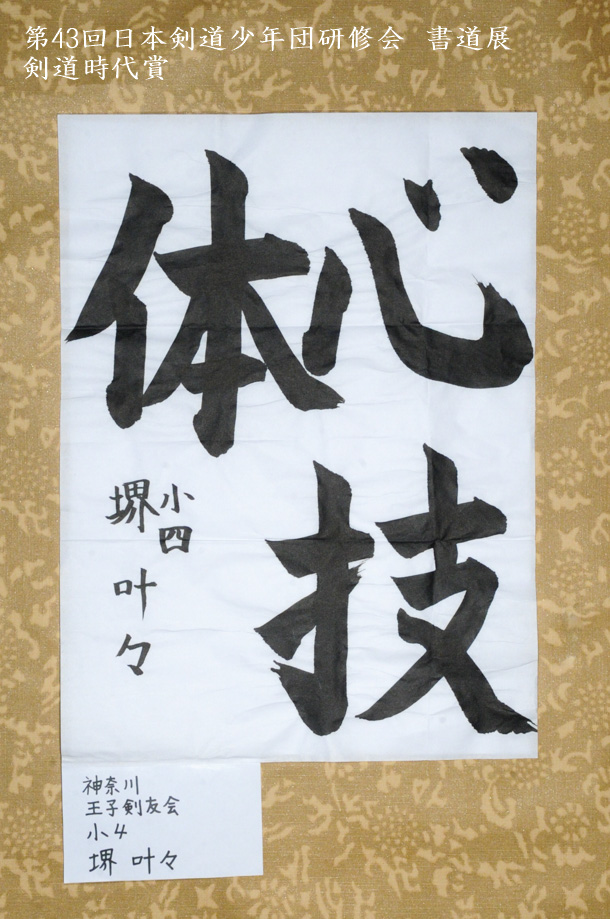 第43回日本剣道少年団研修会 書道展
剣道時代賞
心技
体
小四
堺叶々
神奈川
王子剣友会
小4
堺 叶々